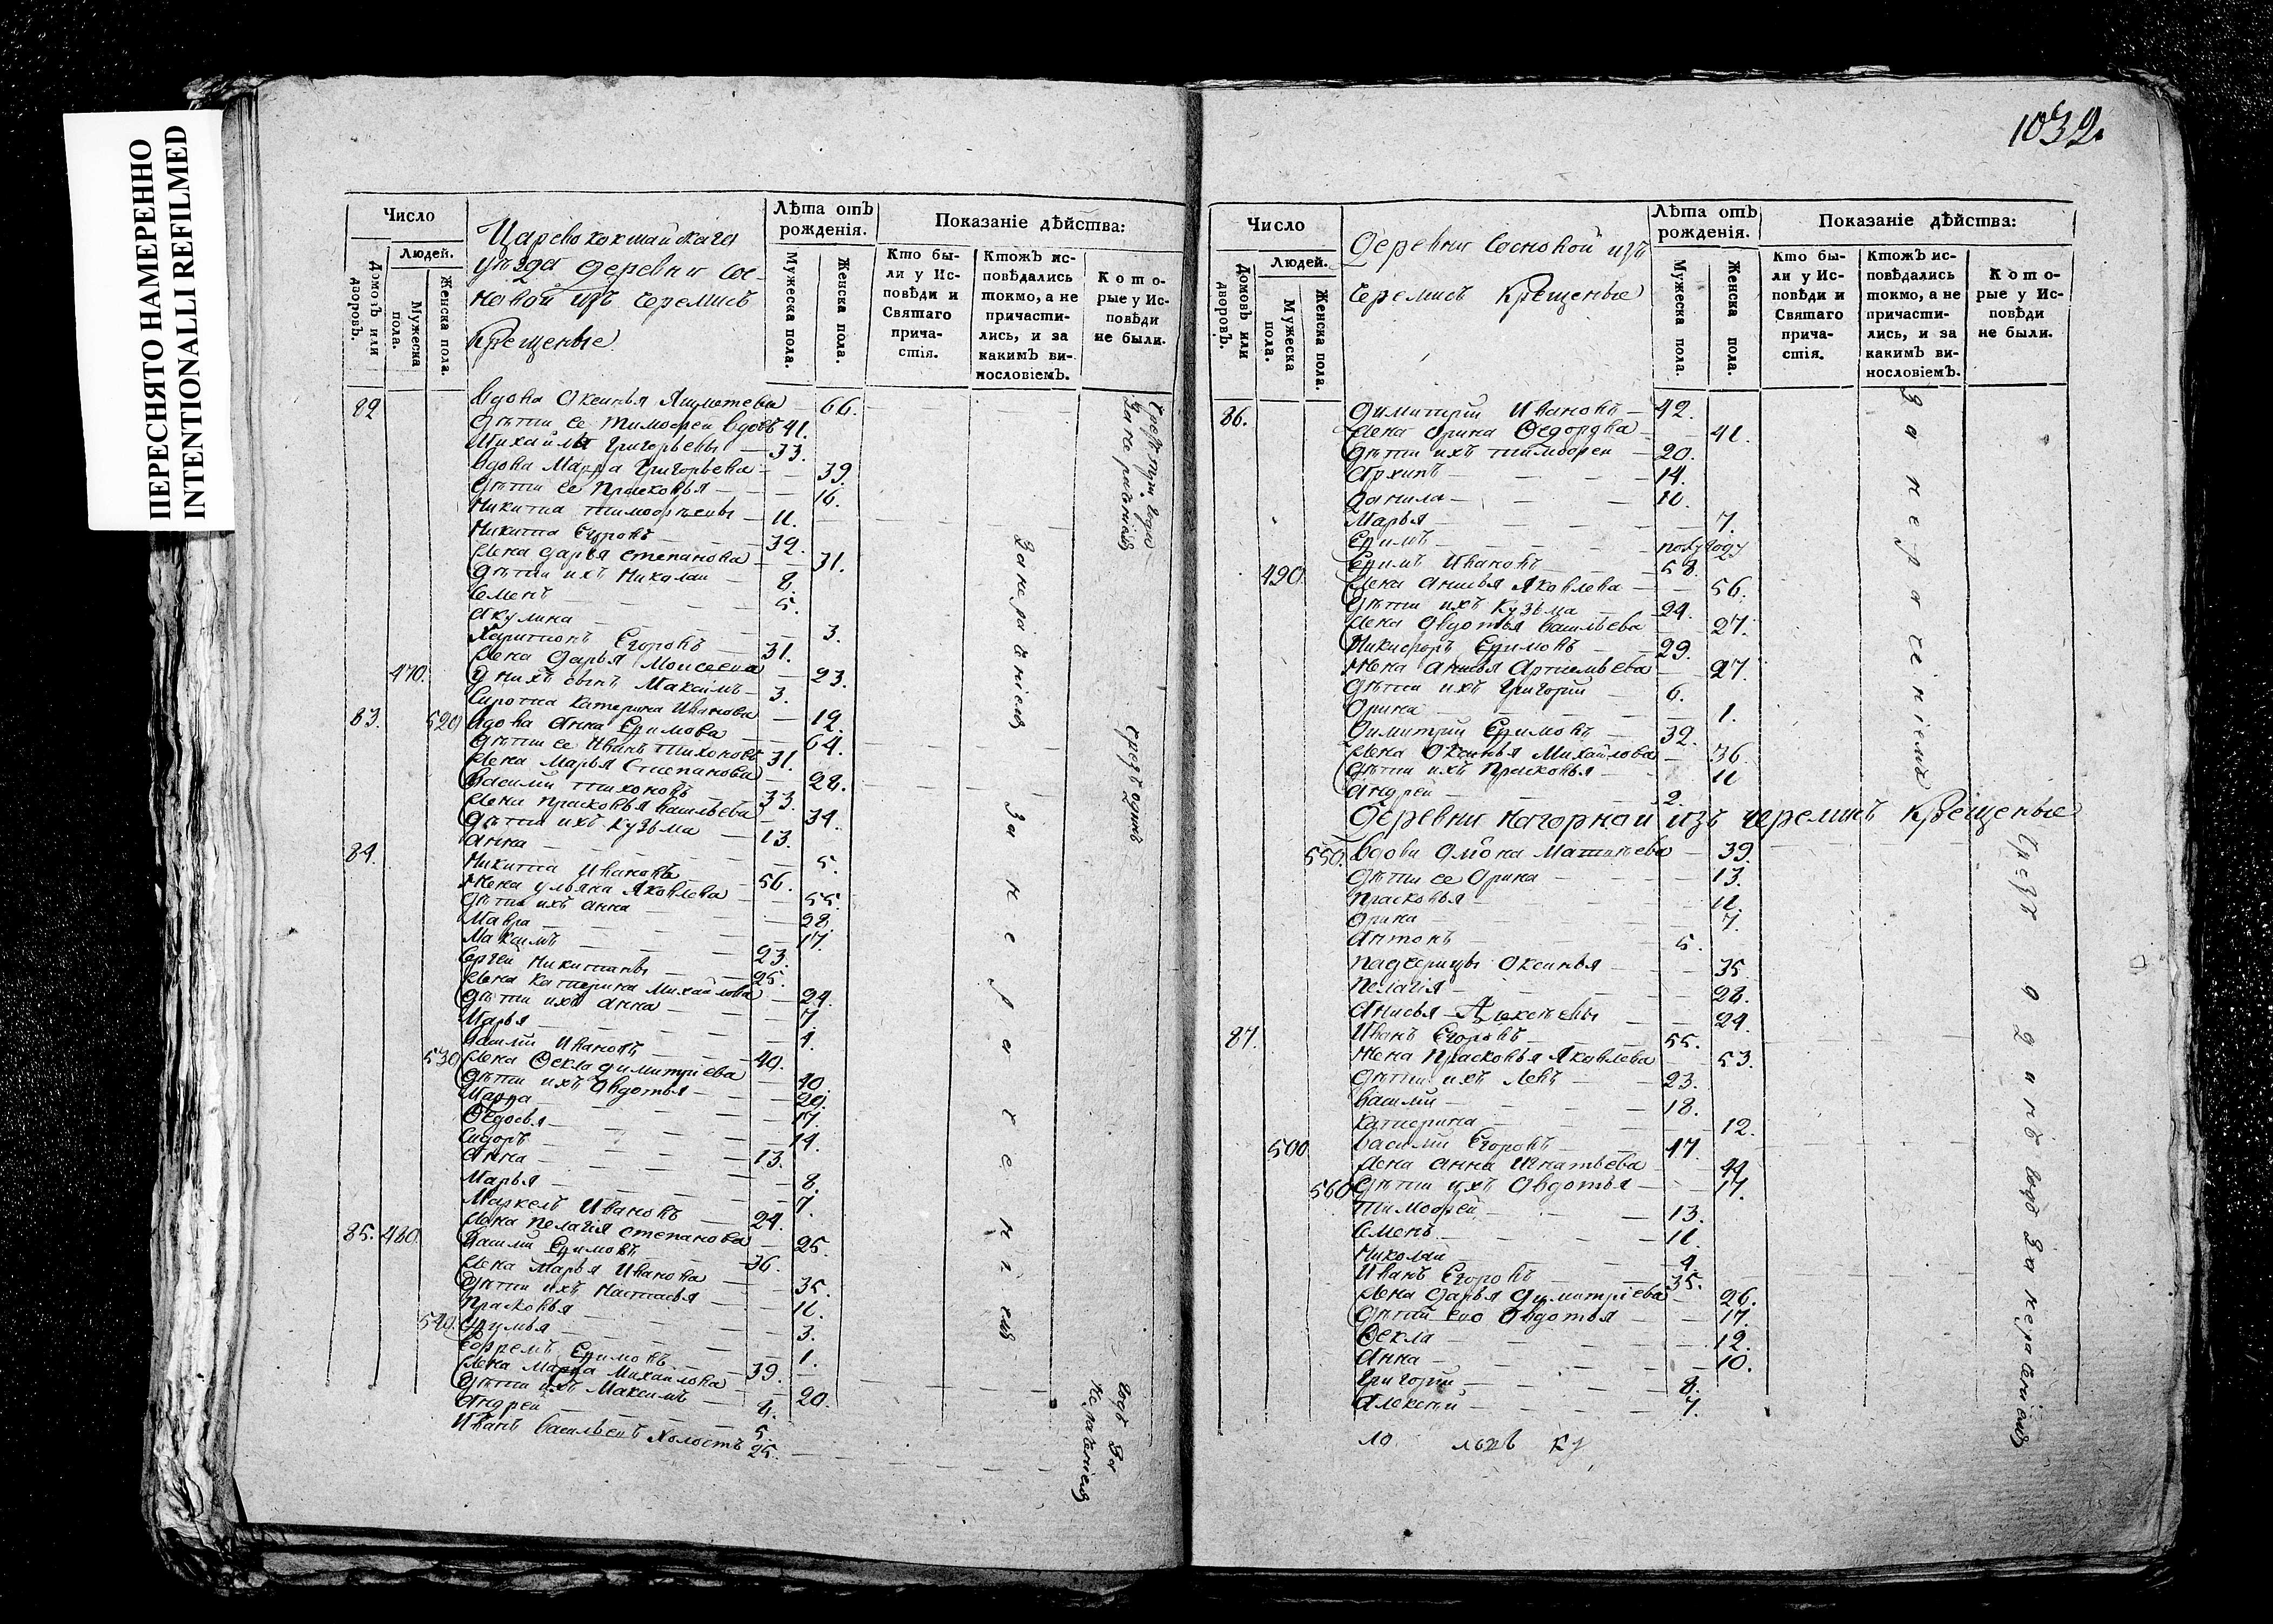 ПЕРЕСНЯТО НАМЕРЕННО
INTENTIONALLI REFILMED
Число
Людей.
Домовъ или дворовъ.
Мужеска пола.
Женска пола.
Царевококшайскаго
уѣзда деревни Сос-
новой изъ Черемисъ
Крещеные
Лѣта отъ рожденія.
Мужеска пола.
Женска пола.
Показаніе дѣйства:
Кто бы-
ли у Ис-
повѣди и
Святаго
прича-
стія.
Ктожъ ис-
повѣдались
токмо, а не
причасти-
лись, и за
какимъ ви-
нословіемъ.
Кото-
рые у Ис-
повѣди
не были.
82 Вдова Оксинья 66.
Дѣти ее Тимофеи вдовъ 41.
Михайла Григорьевы 33.
Вдова Марфа Григорьева 39.
Дѣти ее Прасковья 16.
Никита Тимофѣевы 11.
Никита Егоровъ 32.
Жена Дарья Степанова 31.
Дѣти ихъ Николаи 8.
Семенъ 5.
Акулина 3.
Харитонъ Егоровъ 31.
Жена Дарья Моисеева 23.
470. У нихъ сынъ Максимъ 3.
Сирота Катерина Иванова 12.
83. 520 Вдова Анна Ефимова 64.
Дѣти ее Иванъ Тихоновъ 31.
Жена Марья Степанова 28.
Василии Тихоновъ 33.
Жена Прасковья Васильева 34.
Дѣти ихъ Кузьма 13.
Анна 5.
84. Никита Ивановъ 56.
Жена Ульяна Яковлева 55.
Дѣти ихъ Анна 28.
Мавра 17.
Максимъ 23.
Сергеи Никитины 25.
Жена Катерина Михайлова 24.
Дѣти ихъ Анна 7.
Марья 1.
Василии Ивановъ 40.
530 Жена Ѳекла Димитріева 40.
Дѣти ихъ Овдотья 20.
Марфа 17.
Ѳедосья 14.
Сидоръ 13.
Анна 8.
Марья 7.
Маркелъ Ивановъ 24.
Жена Пелагія Степанова 25.
85. 480. Василии Ефимовъ 36.
Жена Марья Иванова 35.
Дѣти ихъ Настасья 11.
Прасковья 3.
540. 1.
Ефремъ Ефимовъ 39.
Жена Марфа Михайлова 20.
Дѣти ихъ Максимъ
Андреи 5.
Иванъ Васильевъ Холостъ 25.
За нераченіемъ
За нераченіемъ
Чрезъ одинъ
годъ За
нераченіемъ
1032.
Число
Людей.
Домовъ или дворовъ.
Мужеска пола.
Женска пола.
Деревни Сосновой изъ
Черемисъ Крещеные
Лѣта отъ рожденія.
Мужеска пола.
Женска пола.
Показаніе дѣйства:
Кто бы-
ли у Ис-
повѣди и
Святаго
прича-
стія.
Ктожъ ис-
повѣдались
токмо, а не
причасти-
лись, и за
какимъ ви-
нословіемъ.
Кото-
рые у Ис-
повѣди
не были.
86. Димитріи Ивановъ 42.
Жена Орина Ѳедорова 41.
Дѣти ихъ Тимофеи 20.
Архипъ 14.
Данила 10.
Марья 7.
Ефимъ полугоду
490. Ефимъ Ивановъ 58.
Жена Анисья Яковлева 56.
Дѣти ихъ Кузьма 24.
Жена Овдотья Васильева 27.
Никифоръ Ефимовъ 29.
Жена Анисья Артемьева 27.
Дѣти ихъ Григоріи 6.
Орина 1.
Димитріи Ефимовъ 32.
Жена Оксинья Михайлова 36.
Дѣти ихъ Прасковья 11
Андреи 2.
Деревни Нагорной изъ черемисъ Крещеные
550. Вдова Матвѣева 39.
Дѣти ее Орина 13.
Прасковья 11.
Орина 7.
Антонъ 5.
Падчерицы Оксинья 35
Пелагія 28.
Анисья Алексѣевы 24.
87. Иванъ Егоровъ 55.
Жена Прасковья Яковлева 53.
Дѣти ихъ Левъ 23.
Василии 18.
Катерина 12.
500 Василии Егоровъ 47.
Жена Анна Игнатьева 44
560 Дѣти ихъ Овдотья 17.
Тимофеи 13.
Семенъ 11.
Николаи 4.
Иванъ Егоровъ 35.
Жена Дарья Димитріева 26.
Дѣти его Овдотья 17.
Ѳекла 12.
Анна 10.
Григорiи 8.
Алексѣи 7.
За нераченіемъ
Чрезъ одинъ годъ За нераченіемъ